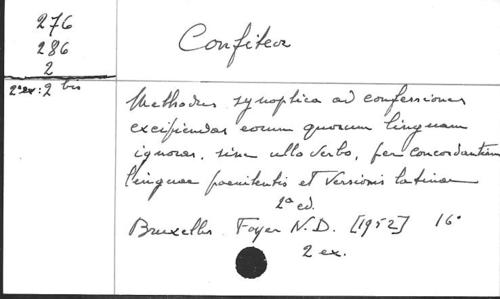 276
286
2
2ª ex: 2 bis
Confiteor
Methodus synoptica ad confessiones
excipiendas eorum quorum linguam
ignoras, sine ullo verbo, per concordantiam
linguae paenitentis et versionis latinae
2ª ed.
Bruxelles Foyer N.D. [1952] 16°
2 ex.